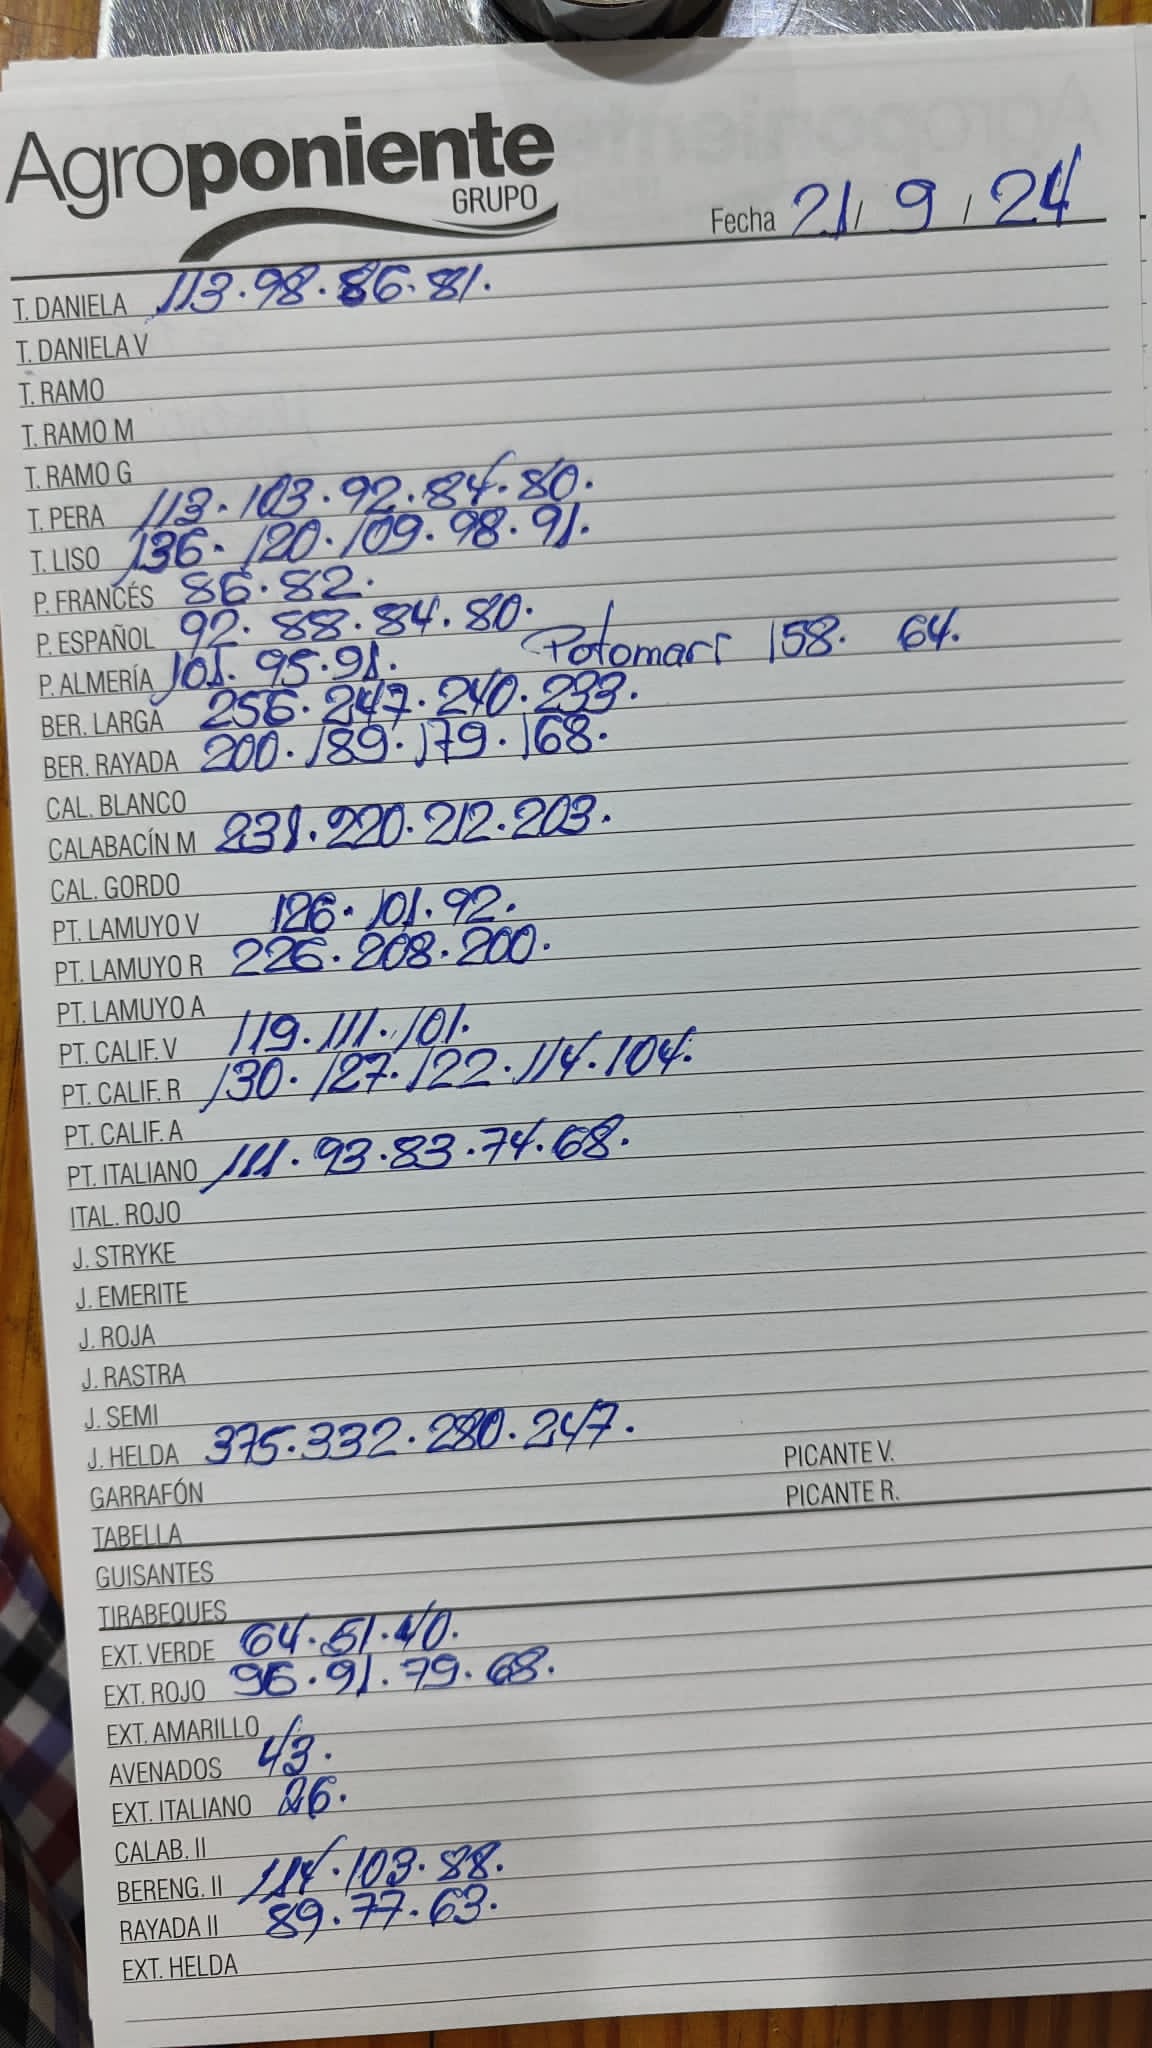 Agroponiente
GRUPO
Fecha 21/ 9 / 24
T. DANIELA 113.98.86.81.
T. DANIELA V
T. RAMO
T. RAMO M
T. RAMO G
T. PERA 113.103.92.84.80.
T. LISO 136.120.109.98.91.
P. FRANCÉS 86.82.
P. ESPAÑOL 92.88.84.80.
P. ALMERÍA 101.95.91. Potomarr 158. 64.
BER. LARGA 256.247.240.233.
BER. RAYADA 200.189.179.168.
CAL. BLANCO
CALABACÍN M 231.220.212.203.
CAL. GORDO
PT. LAMUYO V 126.101.92.
PT. LAMUYO R 226.208.200.
PT. LAMUYO A
PT. CALIF. V 119.111.101.
PT. CALIF. R 130.127.122.114.104.
PT. CALIF. A
PT. ITALIANO 111.93.83.74.68.
ITAL. ROJO
J. STRYKE
J. EMERITE
J. ROJA
J. RASTRA
J. SEMI
J. HELDA 375.332.280.247.
PICANTE V.
GARRAFÓN
PICANTE R.
TABELLA
GUISANTES
TIRABEQUES
EXT. VERDE 64.51.40.
EXT. ROJO 96.91.79.68.
EXT. AMARILLO
AVENADOS 43.
EXT. ITALIANO 26.
CALAB. II
BERENG. II 114.103.88.
RAYADA II 89.77.63.
EXT. HELDA